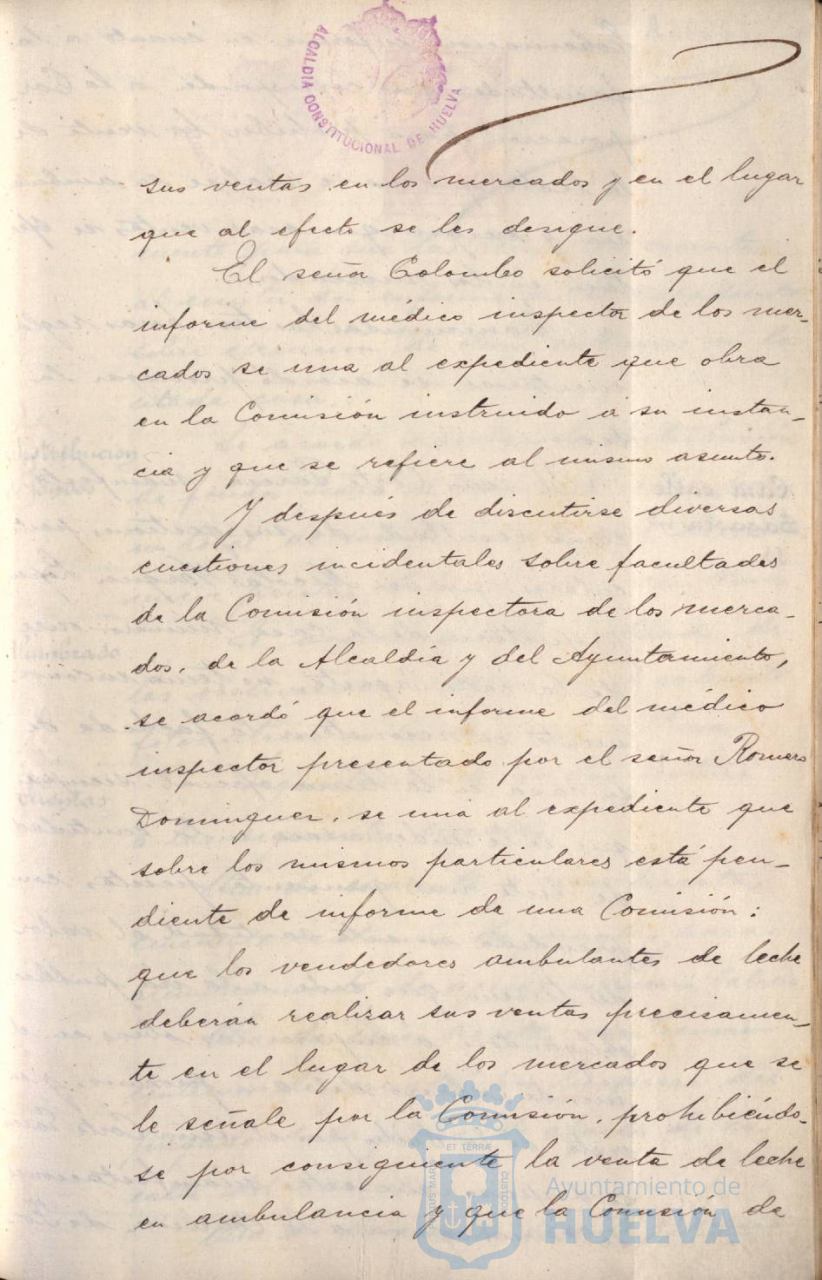 ALCALDIA CONSTITUCIONAL DE HUELVA
sus ventas en los mercados y en el lugar
que al efecto se les designe.
El señor Colombo solicitó que el
informe del médico inspector de los mer-
cados se una al expediente que obra
en la Comisión instruido a su instan-
cia y que se refiere al mismo asunto.
Y después de discutirse diversas
cuestiones incidentales sobre facultades
de la Comisión inspectora de los merca-
dos, de la Alcaldía y del Ayuntamiento,
se acordó que el informe del médico
inspector presentado por el señor Romero
Dominguez, se una al expediente que
sobre los mismos particulares está pen-
diente de informe de una Comisión:
que los vendedores ambulantes de leche
deberán realizar sus ventas precisamen-
te en el lugar de los mercados que se
le señale por la Comisión, prohibiéndo-
se por consiguiente la venta de leche
en ambulancia y que la Comisión de
Ayuntamiento de
HUELVA